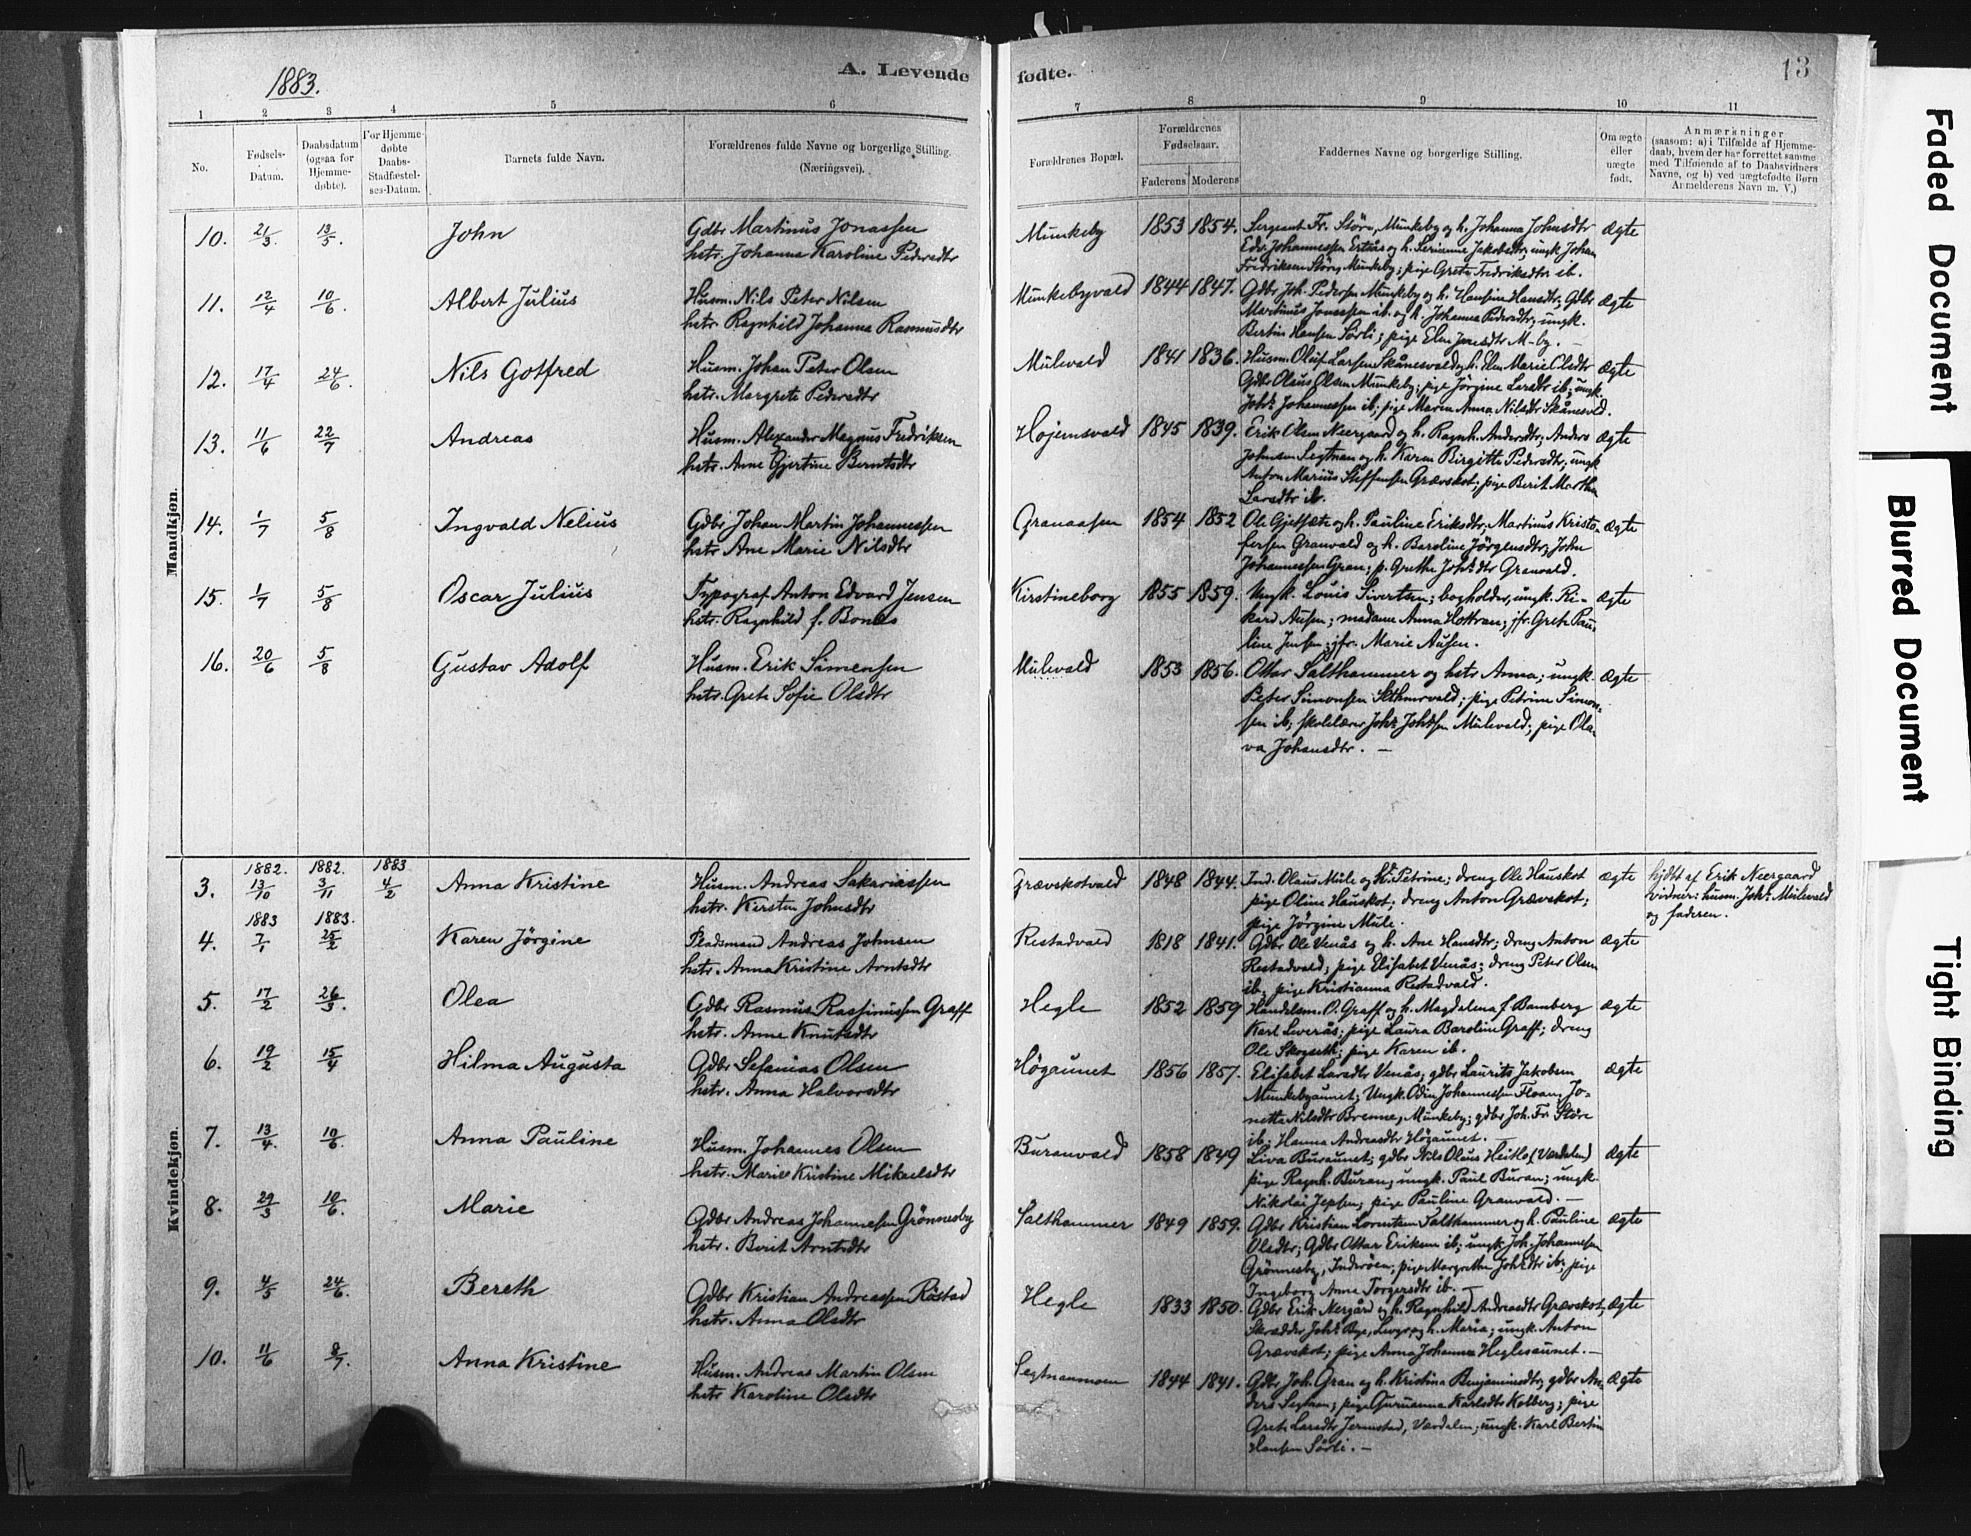 1883.
A. Levende
fødte.
13
1 2 3 4 5 6 7 8 9 10 11
No.
Fødsels-
Datum.
Daabsdatum
(ogsaa for
Hjemme-
døbte).
For Hjemme-
døbte
Daabs-
Stadfæstel-
ses-Datum.
Barnets fulde Navn.
Forældrenes fulde Navne og borgerlige Stilling.
(Næringsvei).
Forældrenes Bopæl.
Forældrenes
Fødselsaar.
Faderens Moderens
Faddernes Navne og borgerlige Stilling.
Om ægte
eller
uægte
født.
Anmærkninger
(saasom: a) i Tilfælde af Hjemme-
daab, hvem der har forrettet samme
med Tilføiende af to Daabsvidners
Navne, og b) ved uægtefødte Børn
Anmelderens Navn m. V.)
Mandkjøn.
10. 21/3 13/5. John
Gdbr Martinus Jonassen
hstr. Johanna Karoline Pedersdtr
Munkeby 1853 1854.
Sergeant Fr. Störe, Munkeby og h. Johanna Johnsdtr
Edv. Johannessen Ertsås og h. Serianna Jakobsdtr; ungk Johan
Fredriksen Störe, Munkeby; pige Grete Fredriksdtr ib.
Ægte
11. 12/4 10/6. Albert Julius
Husm. Nils Peter Nilsen
hstr. Ragnhild Johanna Rasmusdtr
Munkebyvald 1844 1847.
Gdbr Joh. Pedersen Munkeby og h. Hansine Hansdtr; Gdbr
Martinus Jonassen ib. og h. Johanna Pedersdtr; ungk.
Bertin Hansen Sörli; pige Elen Jensdtr M-by. –
Ægte
12. 17/4 24/6. Nils Gotfred
Husm. Johan Peter Olsen
hstr. Margrete Pedersdtr
Mulevald 1841 1836.
Husm. Oluf Larsen Skånesvald og h. Elen Marie Olsdtr
Gdbr Olaus Olsen Munkeby; pige Jörgine Larsdtr ib; ungk.
Johs Johannessen ib; pige Maren Anna Nilsdtr Skånesvld.
Ægte
13. 11/6 22/7 Andreas
Husm. Alexander Magnus Fredriksen
hstr. Anne Gjertine Berntsdtr
Højemsvald 1845 1839.
Erik Olsen Neergaard og h. Ragnh. Andersdtr; Anders
Johnsen Segtnan og h. Karen Birgitte Pedersdtr; ungk
Anton Marius Steffensen Grævskot; pige Berit Martha
Larsdtr ib.
Ægte
14. 1/7 5/8 Ingvald Nelius
Gdbr Johan Martin Johannessen
hstr Ane Marie Nilsdtr
Granaasen 1854 1852
Ole Gjetsæte og h. Pauline Eriksdtr; Martinus Kristo-
fersen Granvald og h. Baroline Jörgensdtr; John
Johannessen Gran; p. Grethe Johsdtr Granvald.
Ægte
15. 1/7 5/8 Oscar Julius
Typograf Anton Edvard Jensen
hstr. Ragnhild f. Bonds
Kirstineborg 1855 1859.
Ungk. Louis Sivertsen; bogholder, ungk. Ri-
kard Ausen; madame Anna Hottran; jfr. Grete Pau-
line Jensen; jfr. Marie Ausen.
Ægte
16. 20/6 5/8 Gustav Adolf
Husm. Erik Simonsen
hstr. Grete Sofie Olsdtr
Mulevald 1853 1856.
Ottar Salthammer og hstr Anna; ungk.
Peter Simonsen Slthmrvald; pige Petrine Simon-
sen ib; skolelærer Johs Johssen Mulevald; pige Ola-
va Johansdtr. –
Ægte
Kvindekjøn.
3. 1882. 13/10 1882. 3/11 1883 4/2 Anna Kristine
Husm. Andreas Sakariassen
hstr. Kirsten Johnsdtr
Grævskotvald 1848 1844.
Ind. Olaus Mule og h. Petrine; dreng Ole Hauskot
pige Oline Hauskot; dreng Anton Grævskot;
pige Jörgine Mule.
ægte
hjdt af Erik Neergaard
vidner: husm. Johs Mulevald
og faderen.
4. 1883 7/1 1883. 25/2 Karen Jörgine
Pladsmand Andreas Johnsen
hstr. Anna Kristine Arntsdtr
Restadvald 1818 1841.
Gdbr Ole Venås og h. Ane Hansdtr; dreng Anton
Restadvald; pige Elisabet Venås; dreng Peter Olsen
ib; pige Kristianna Restadvald.
Ægte
5. 17/2 26/3. Olea
Gdbr Rasmus Rasmussen Graff
hstr. Anne Knutsdtr
Hegle 1852 1859
Handelsm. O. Graff og h. Magdalena f. Bamberg
Karl Leverås; pige Laura Baroline Graff; dreng
Ole Skogseth; pige Karen ib.
Ægte
6. 19/2 15/4 Hilma Augusta
Gdbr Sefanias Olsen
hstr. Anna Halvorsdtr
Högaunet 1856 1857.
Elisabet Larsdtr Venås; gdbr Laurits Jakobsen
Munkebyaunet; Ungk. Odin Johannessen Floan; Jo-
netta Nilsdtr Brenne, Munkeby; gdbr Joh. Fr. Störe
ib; Hanna Andreasdtr Högaunet.
Ægte
7. 13/4. 10/6. Anna Pauline
Husm. Johannes Olsen
hstr. Marie Kristine Mikaelsdtr
Buranvald 1858 1849
Liva Buraunet; gdbr Nils Olaus Heitlo (Værdalen)
pige Ragnh. Buran; ungk. Paul Buran; ungk.
Nikolai Jepsen; pige Pauline Granvald. –
Ægte
8. 29/3 10/6. Marie
Gdbr Andreas Johannesen Grönnesby
hstr. Berit Arntsdtr
Salthammer 1849 1859.
Gdbr Kristian Lorentsen Salthammer og h. Pauline
Olsdtr; Gdbr Ottar Eriksen ib; ungk Joh. Johannesen
Grönnesby, Inderöen; pige Margrethe Johsdtr ib; pige
Ingeborg Anna Torgersdtr ib. –
Ægte
9. 4/5 24/6. Bereth
Gdbr Kristian Andreassen Röstad
hstr. Anna Olsdtr
Hegle 1833 1850.
Gdbr Erik Nergård og h. Ragnhild Andreasdtr Grævskot;
Skrædder Johs Bye, Levgr og h. Maria; ungk. Anton
Grævskot; pige Anna Johanna Heglesaunet. –
Ægte
10. 11/6 8/7. Anna Kristine
Husm. Andreas Martin Olsen
hstr Karoline Olsdtr
Segtnanmoen 1844 1841.
Gdbr Joh. Gran og h. Kristina Benjaminsdtr; gdbr An-
ders Segtnan; pige Gurianna Karlsdtr Kolberg; pige
Grete Larsdtr Jermstad, Værdalen; ungk. Karl Bertin
Hansen Sörli. –
Ægte
Faded Document
Blurred Document
Tight Binding